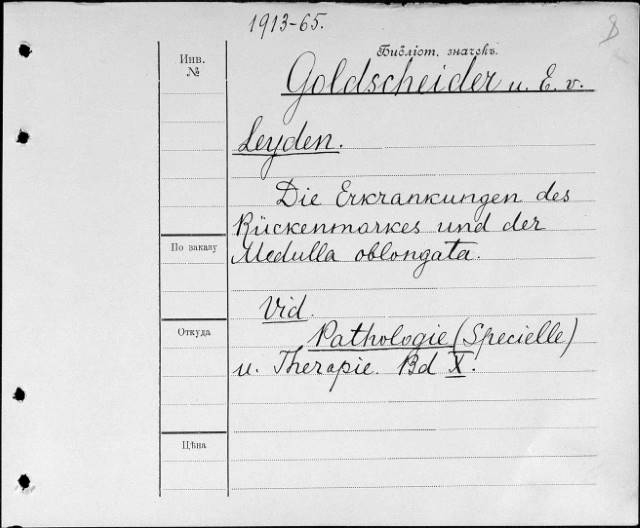 1913-65.
Библіот. значекъ.
Инв.
№
Goldscheider u. E. v.
Leyden.
Die Erkrankungen des
Rückenmarkes und der
По заказу
Medulla oblongata.
Vid.
Откуда
Pathologie (Specielle)
u. Therapie. Bd X.
Цѣна